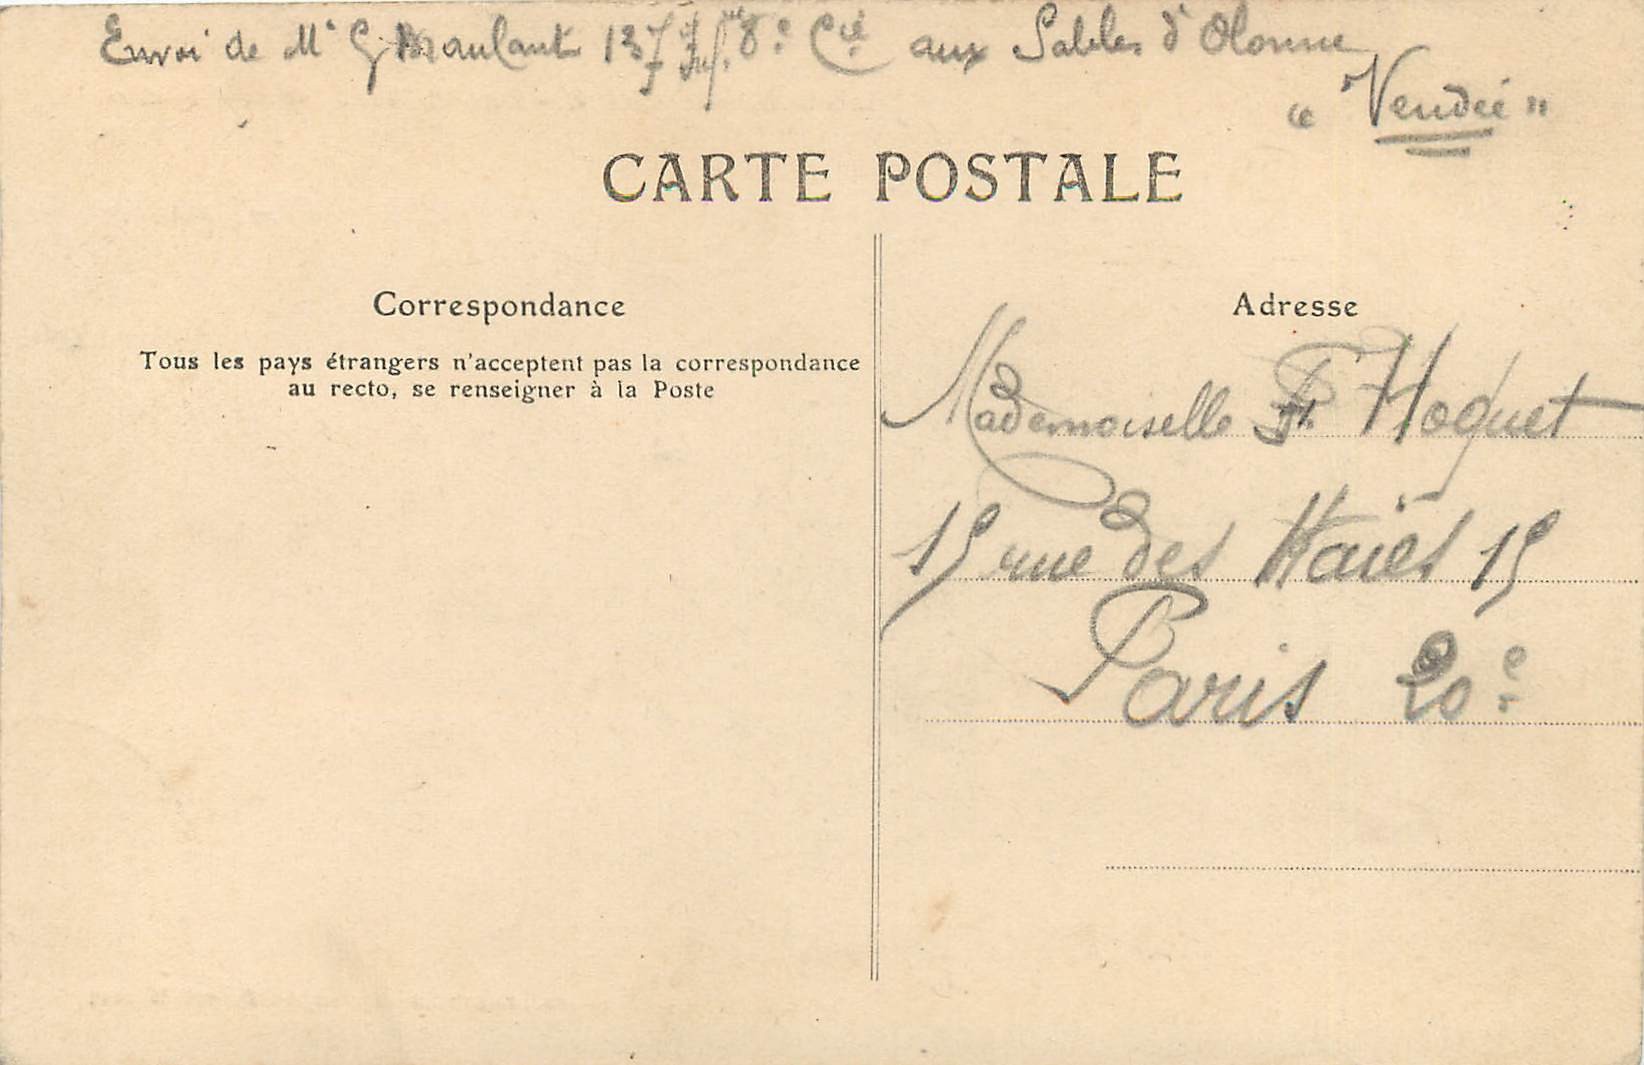 Envoi de Mr G Maulant 137 Inf. 8e Cie aux Sables d'Olonne
"Vendée"
CARTE POSTALE
Correspondance
Tous les pays étrangers n'acceptent pas la correspondance
au recto, se renseigner à la Poste
Adresse
Mademoiselle F. Hoquet
15 rue des Haïes 15
Paris 20e